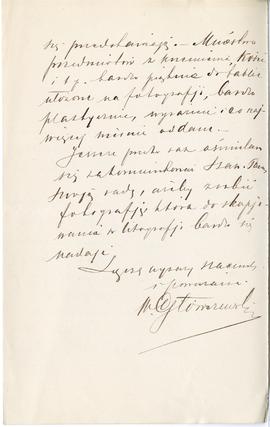 się przedstawiają. – Mnóstwo
przedmiotów z krzemienia, kości
i t. p. bardzo pięknie do tablic
ułożone na fotografji, bardzo
plastycznie, wyraźnie i co naj-
więcej wiernie oddane. –
Jeszcze przeto raz ośmielam
się zakomunikować Szan. Panu
swoją radę, ażeby zrobić
fotografję która do skopjo-
wania w litografji bardzo się
nadaje.
Łączę wyrazy szacunku
i poważania